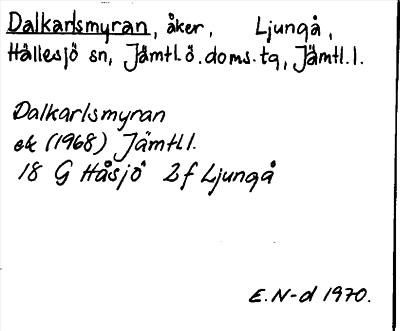 Dalkarlsmyran, åker, Ljungå,
Hällesjö sn, Jämtl.ö.doms.tg, Jämtl.l.
Dalkarlsmyran
ek (1968) Jämtl l.
18 G Håsjö 2f Ljungå
E.N-d 1970.